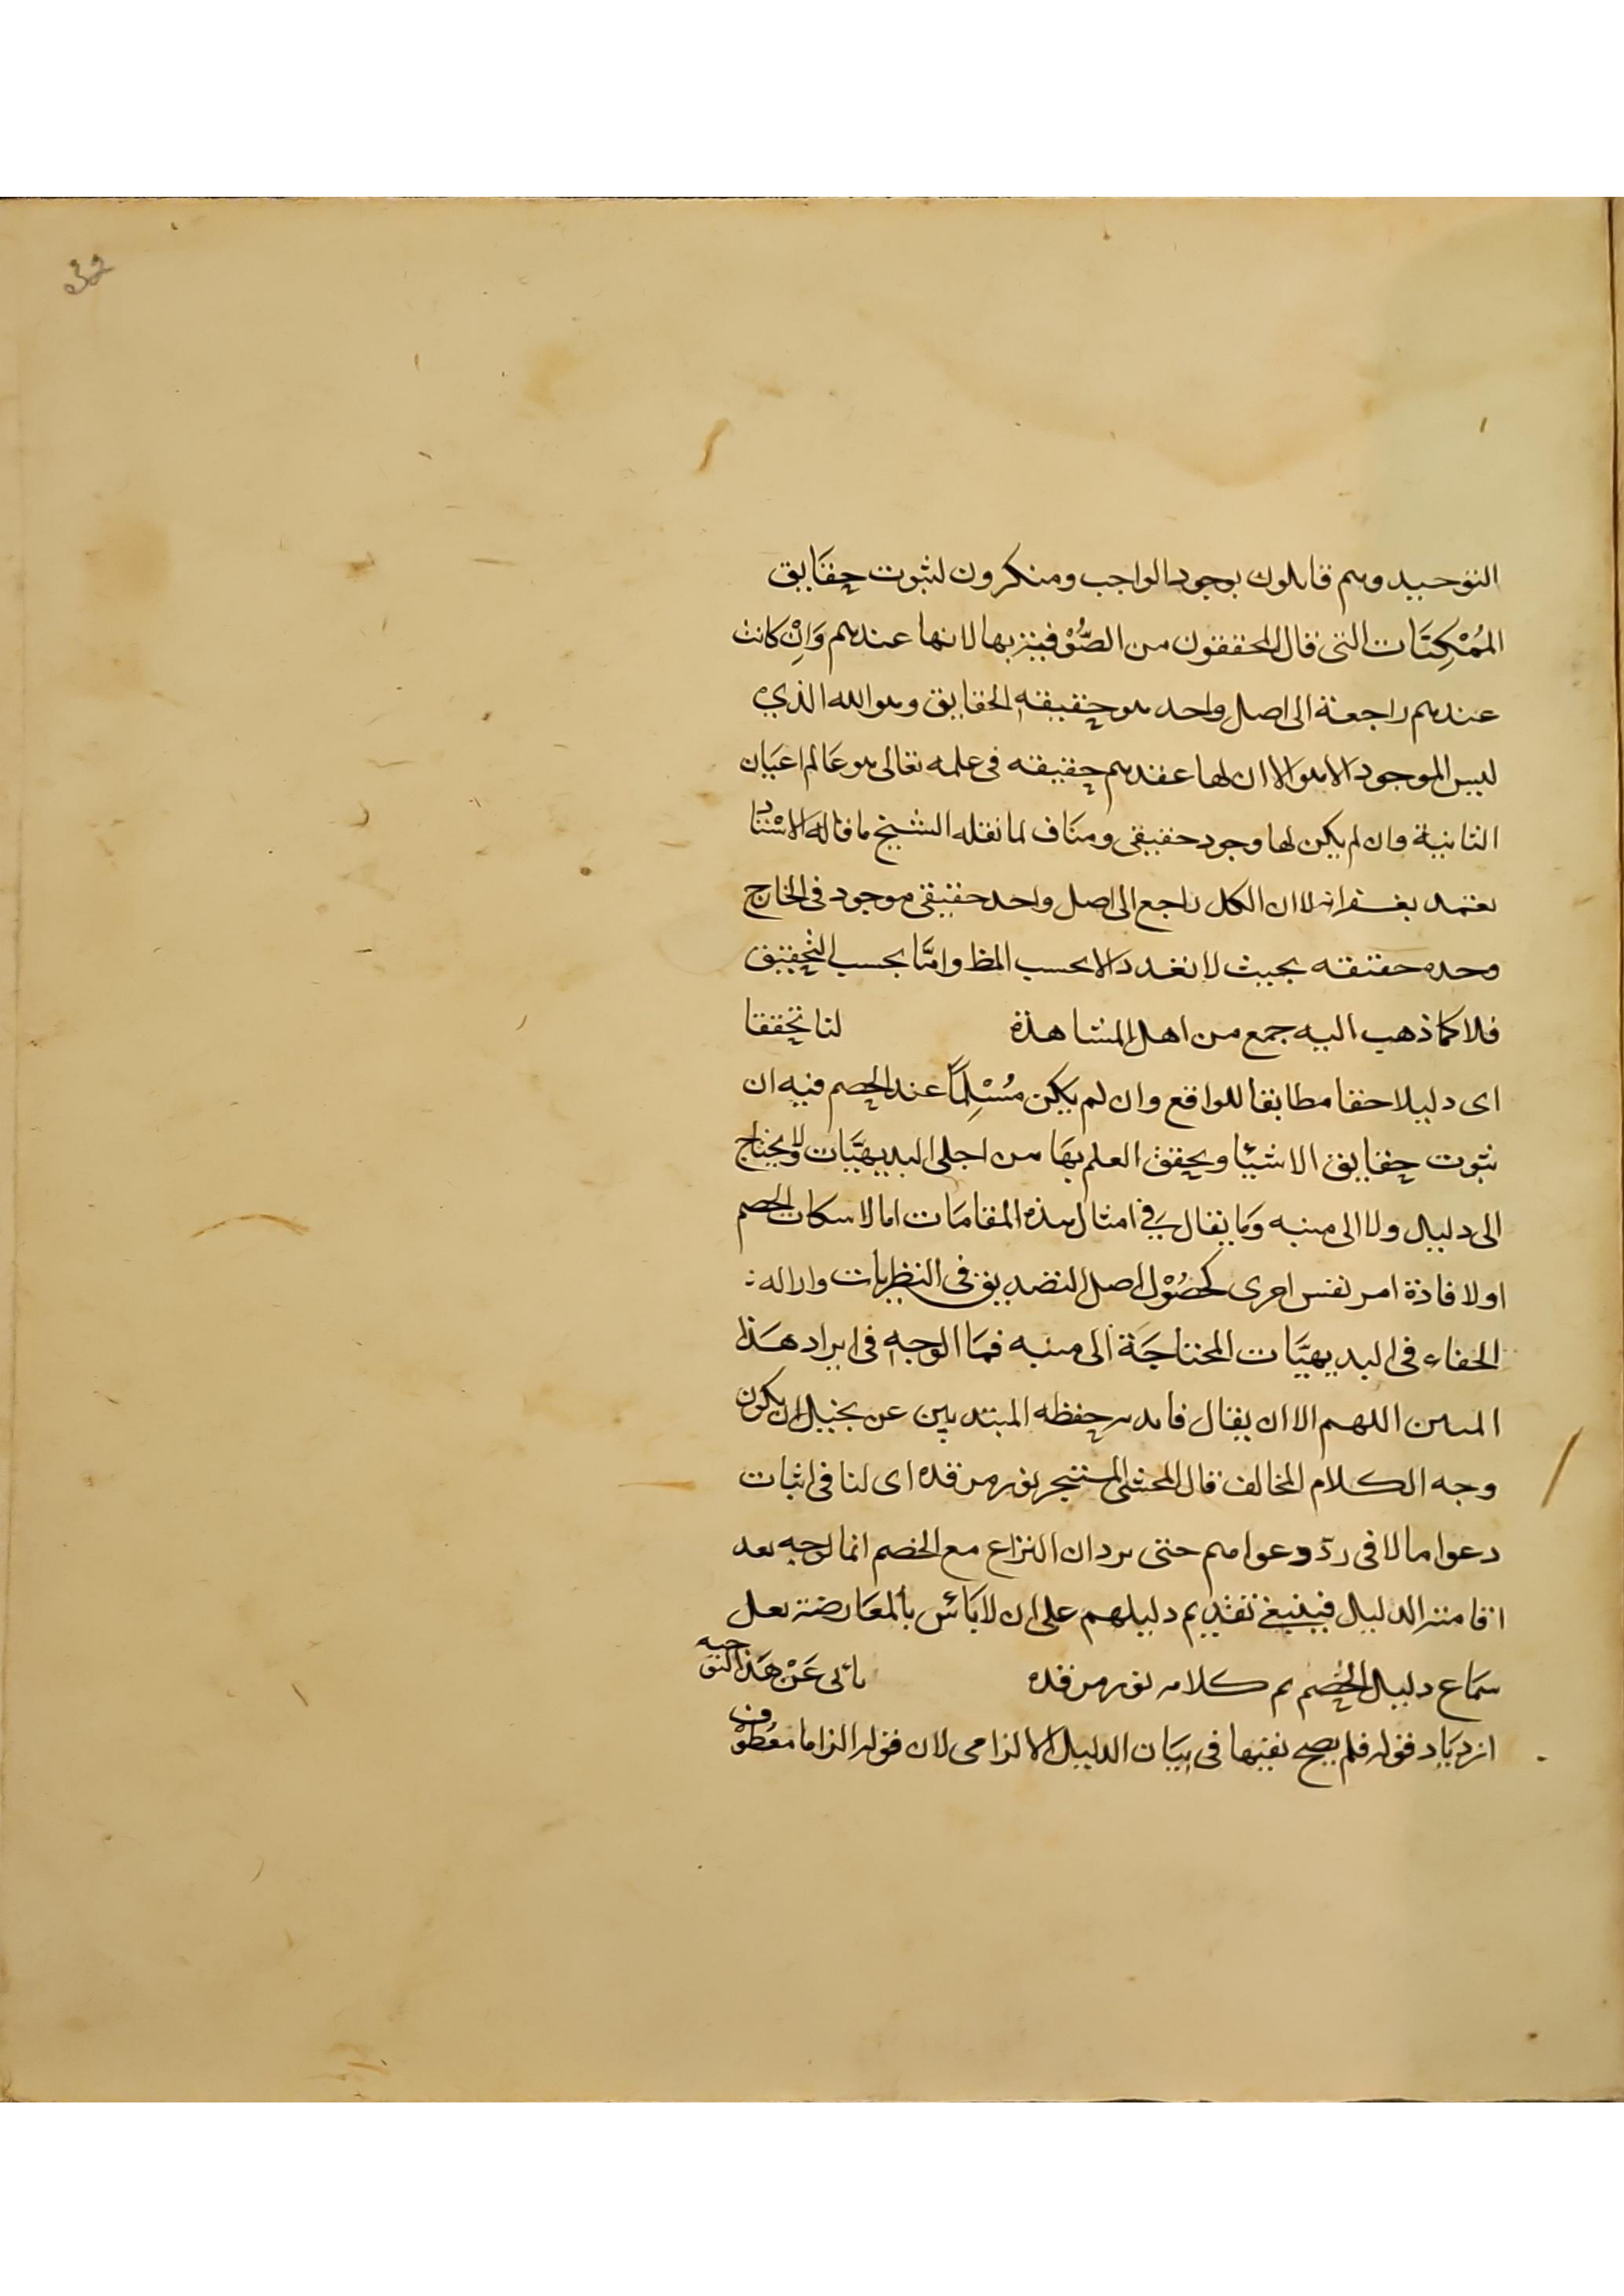 32
التوحيد وهم قايلون بوجود الواجب ومنكرون لثبوت حقايق
المُمْكِنَات التى قال المحققون من الصُّوْفيتر بها لانها عندهم وَاِنْ كانت
عندهم راجعة الى اصل واحد هو حقيقة الحقايق وهو الله الذي
ليس الموجود الا هو الا ان لها عندهم حقيقته فى علمه تعالى هو عَالم اعيَان
الثانية وان لم يكن لها وجود حقيقى ومنَاف لما نقله الشيخ ما قاله الاسْتَاد
الا ان الكل راجع الى اصل واحد حقيقى موجود فى الخارج
وحده حقيقته بحيث لا تعدد الا بحسب المظ وامَّا بحسب التحقيق
فلا كما ذهب اليه جمع من اهل المشاهذة لنا تحقيقا
اى دليلا حقا مطابقا للواقع وان لم يكن مُسْلِمًا عند الخصم فيه ان
ثبوت حقايق الاشيئا ويحقق العلم بهَا من اجلى البديهيَّات ولا يحتاج
الى دليل ولا الى منبه وَمَا يقال في امثال هذه المقامَات اما لاسكات الخصم
او لافاذة امر نفس اخرى كحصُوْل اصل التصديق فى النظريات وازاله :
الخفاء فى البديهيَّات المحتاجَة الى منبه فمَا الوجه فى ايراد هَذا
اللهم الا ان يقال حفظه المبتديين عن تخيل ان يكون
وجه الكلام المخالف قال المحشى المستبحر نور مرقده اى لنا فى اثبات
دعوا مالا فى ردّ دعواهم حتى يرد ان النزاع مع الخصم انما توجه بعد
اقامتر الدليل فينبغي تقديم دليلهم على ان لا بَأس بالمعَارضتر بعل
سَمَاع دليل الخصم تم كلامه نور مرقده يأبى عَنْ هَذا التوجيه
ازديَاد قوله فلم يصح نفيها فى بيَان الدليل الالزامى لان قوله الزاما معُطوْف